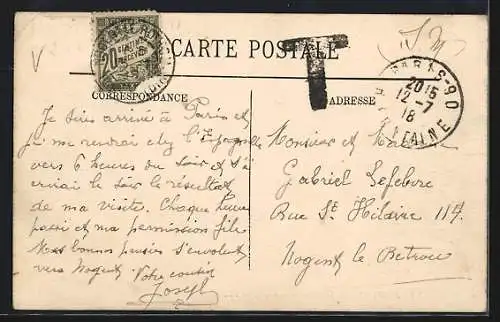 CARTE POSTALE
T
F. M
PARIS-90
2015
12-7
18
20
CORRESPONDANCE
ADRESSE
Je suis arrivé à Paris et
je me rendrai chez
vers 6 heures du soir et t'é
crirai le soir le résultat
de ma visite. Chaque heure
passe et ma permission file
Mes bons pensées s'envolent
vers Nogent. Votre cousin
Joseph
Monsieur et Madame
Gabriel Lefebvre
Rue St Hilaire 114
Nogent le Rotrou